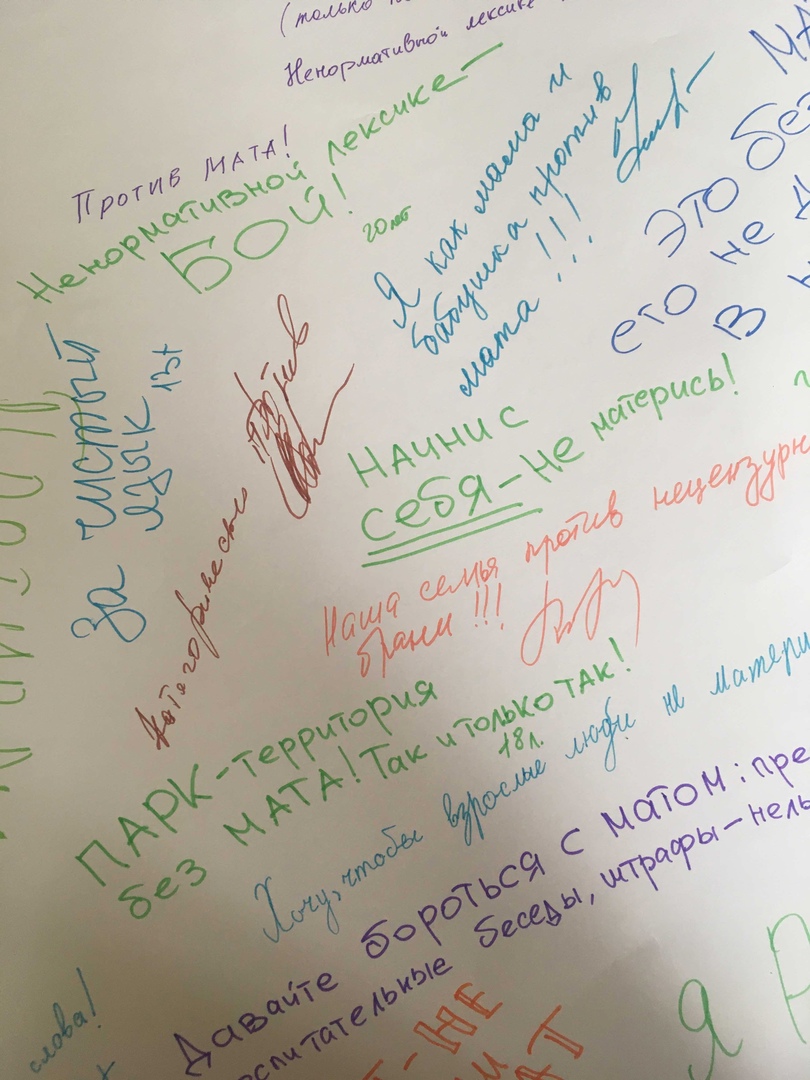 (только
Ненормативной лексике
Против МАТА!
Ненормативной лексике-
БОЙ!
20 лет
Я как мама и
бабушка против
мата!!!...
ЭТО без
его не
В Н
За чистый
язык 13+
Категорически против
НАЧНИ С
себя-не матерись!
Наша семья против нецензурн
брани!!!
ПАРК-территория
без МАТА! Так и только ТАК!
18 л.
Хочу, чтобы взрослые люди не матери
Давайте бороться с матом: пре
спитательные беседы, штрафы-нель
слова!
Т-НЕ
АТ
Я Р